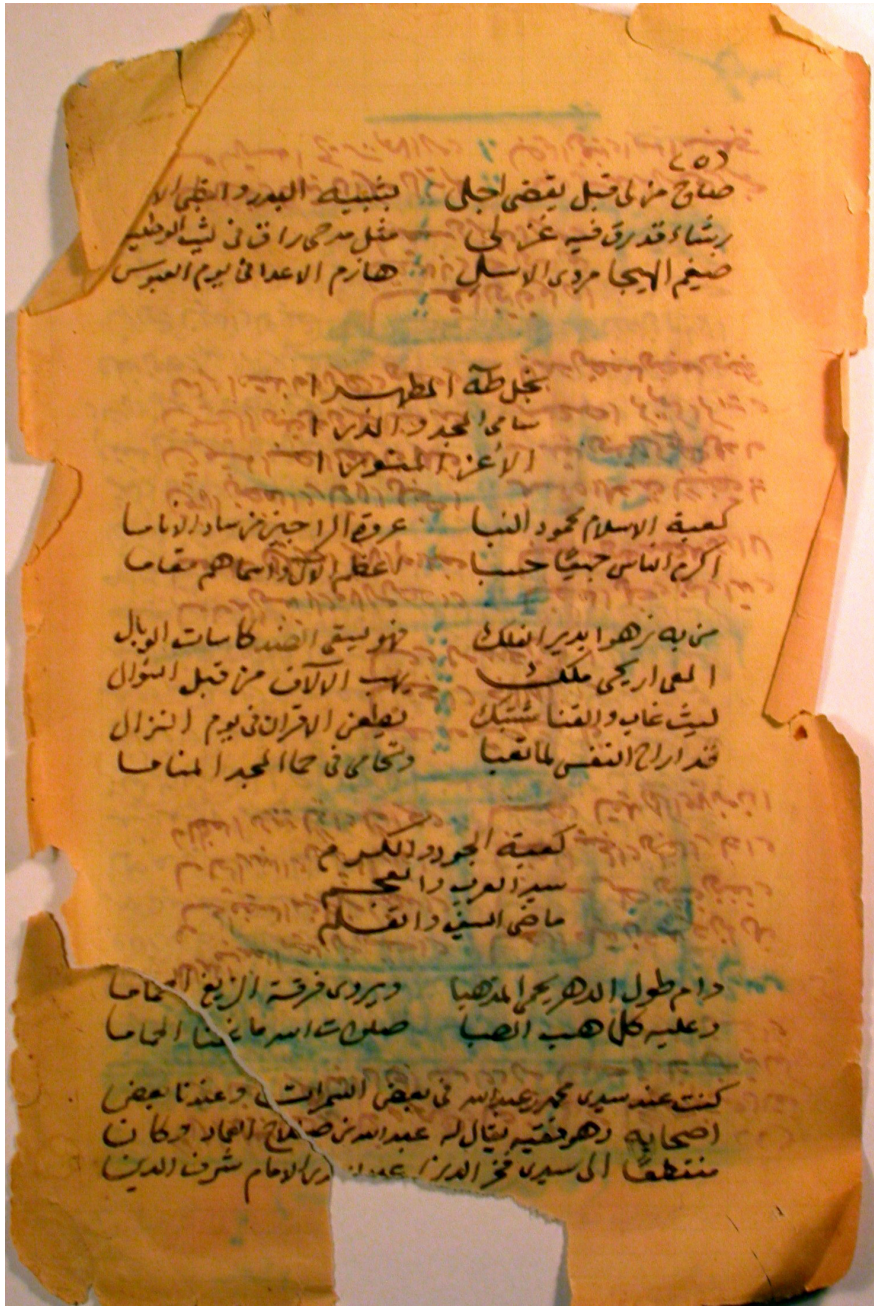 (٥)
صاح من لى قبل يقضى اجلى لشبيه البدر والظبى
رشاء قد رق فيه غزلى مثل مدحى راق فى ليث الوطيس
ضيغم الهيجا مردى الاسل هازم الاعدا فى يوم العبوس
نجل طه المطهرا
سامى المجد والذرا
الأعز المنورا
كعبة الاسلام محمود النبا عروة الراجين من ساد الاناما
اكرم الناس جميعًا حسبا اعظم الال واسماهم مقاما
من به زهوا يدير الفلك فهو يسقى الضد كاسات الوبال
المعى اريحى ملك يهب الآلاف من قبل السؤال
ليث غاب والقنا شتبك يطعن الاقران فى يوم النزال
قد اراح النفس لما تعبا وتحامى فى حما المجد المناما
كعبة الجود والكرم
سيد العرب والعجم
ماضى السيف والقلم
دام طول الدهر يحمى المذهبا ويروى فرقة الزيغ الحماما
وعليه كلما هب الصبا صلوات الله ما غنا الحماما
كنت عند سيدى محمد بن عبدالله فى بعض السمرات وعندنا بعض
اصحابه وهو فقيه يقال له عبدالله بن صلاح العماد وكان
منقطعًا الى سيدى فخر الدين الامام شرف الدين